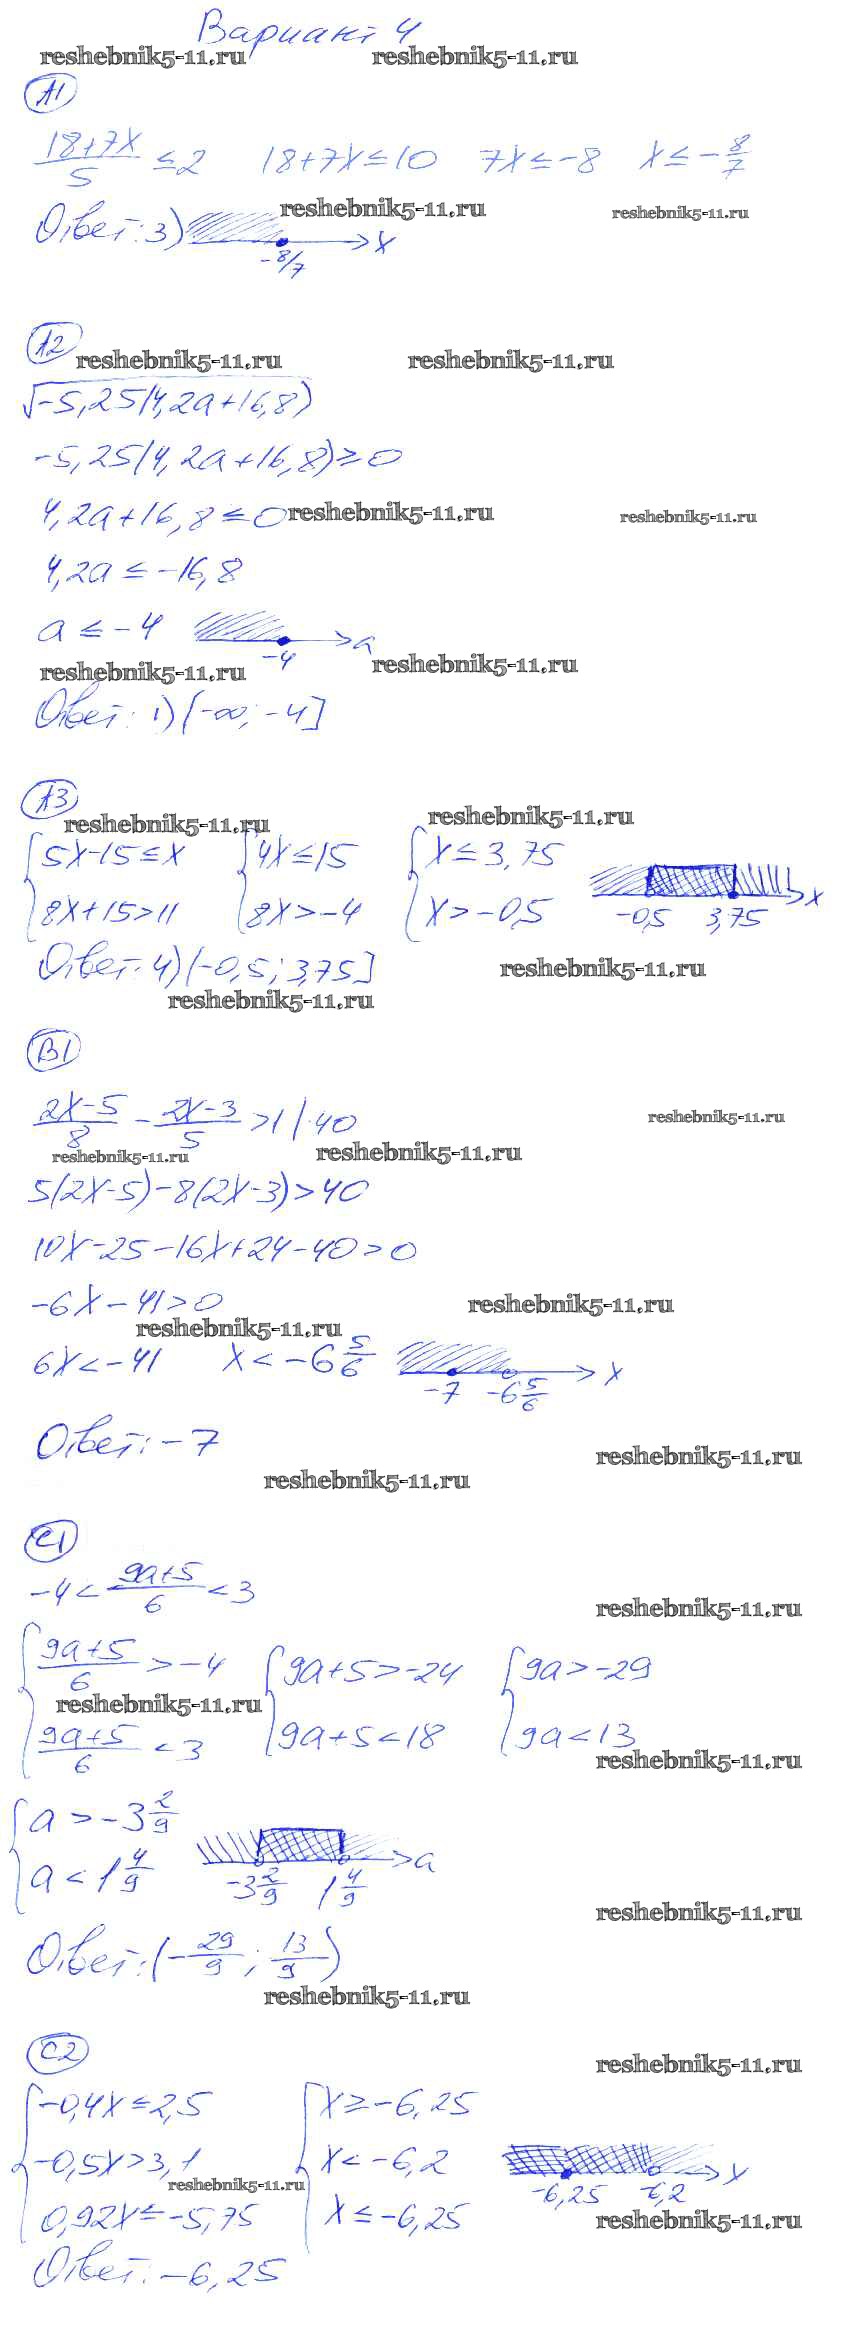 Вариант 4
reshebnik5-11.ru reshebnik5-11.ru
А1
(18+7x)/5 ≤ 2 18+7x ≤ 10 7x ≤ -8 x ≤ -8/7
reshebnik5-11.ru reshebnik5-11.ru
Ответ: 3) x
-8/7
А2
reshebnik5-11.ru reshebnik5-11.ru
√-5,25(4,2a+16,8)
-5,25(4,2a+16,8) ≥ 0
4,2a+16,8 ≤ 0 reshebnik5-11.ru reshebnik5-11.ru
4,2a ≤ -16,8
a ≤ -4 a
-4
reshebnik5-11.ru reshebnik5-11.ru
Ответ: 1) (-∞; -4]
А3
reshebnik5-11.ru reshebnik5-11.ru
{5x-15 ≤ x {4x ≤ 15 {x ≤ 3,75
{8x+15 > 11 {8x > -4 {x > -0,5 x
-0,5 3,75
Ответ: 4) (-0,5; 3,75] reshebnik5-11.ru
reshebnik5-11.ru
В1
(2x-5)/8 - (2x-3)/5 > 1 |·40 reshebnik5-11.ru
reshebnik5-11.ru reshebnik5-11.ru
5(2x-5)-8(2x-3)>40
10x-25-16x+24-40>0
-6x-41>0 reshebnik5-11.ru
reshebnik5-11.ru
6x<-41 x<-6 5/6 x
-7 -6 5/6
Ответ: -7 reshebnik5-11.ru
reshebnik5-11.ru
С1
-4 < (9a+5)/6 < 3 reshebnik5-11.ru
{(9a+5)/6 > -4 {9a+5>-24 {9a>-29
reshebnik5-11.ru
{(9a+5)/6 < 3 {9a+5<18 {9a<13
reshebnik5-11.ru
{a > -3 2/9
{a < 1 4/9 a
-3 2/9 1 4/9
reshebnik5-11.ru
Ответ: (-29/9; 13/9)
reshebnik5-11.ru
С2
reshebnik5-11.ru
{-0,4x ≤ 2,5 {x ≥ -6,25
{-0,5x > 3,1 {x < -6,2 x
reshebnik5-11.ru -6,25 -6,2
{0,92x ≤ -5,75 {x ≤ -6,25 reshebnik5-11.ru
Ответ: -6,25